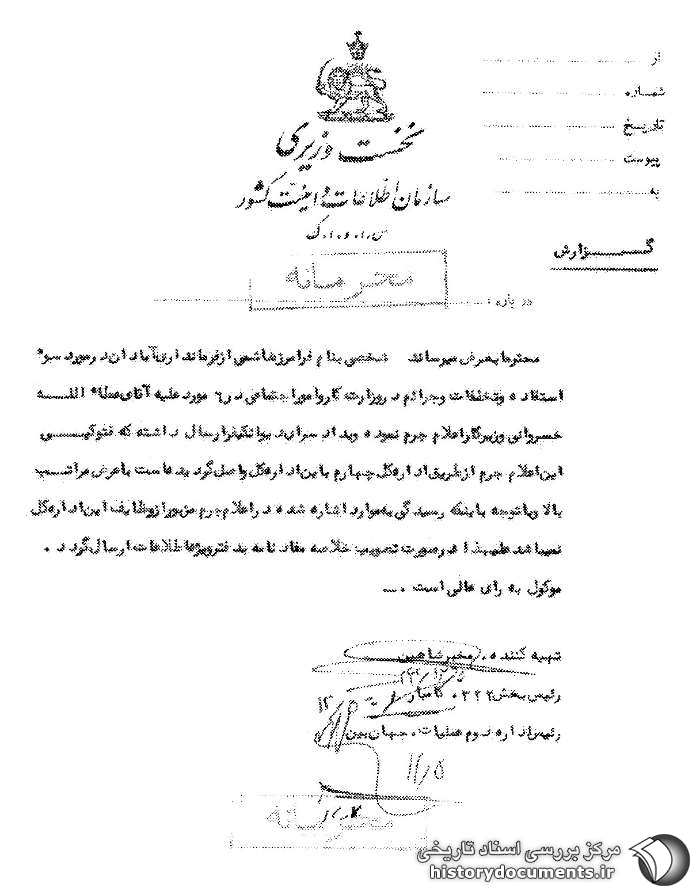 از
شماره
تاریخ
پیوست
به
نخست وزیری
سازمان اطلاعات و امنیت کشور
س.ا.و.ا.ک
گزارش
محرمانه
درباره :
محترما بعرض میرساند شخصی بنام فرامرز هاشمی از فرمانداری آبادان در مورد سوء
استفاده و تخلفات و جرائم در وزارت کار و امور اجتماعی در ۶ مورد علیه آقای عطاء اللـــه
خسروانی وزیر کار اعلام جرم نموده و بدادسرای دیوانکیفر ارسال داشته که فتوکپـــی
این اعلام جرم از طریق اداره کل چهارم باین اداره کل واصل گردیده است با عرض مراتـــب
بالا و با توجه باینکه رسیدگی به موارد اشاره شده در اعلام جرم مزبور از وظایف این اداره کل
نمیباشد علیهذا در صورت تصویب خلاصه مفاد نامه به دفتر ویژه اطلاعات ارسال گردد .
موکول به رای عالی است . ــ
تهیه کننده . مخبر شاهین
رئیس بخش ۳۲۲ .
رئیس اداره دوم عملیات . جهان بین
۱۲/۵
محرمانه
مرکز بررسی اسناد تاریخی
historydocuments.ir